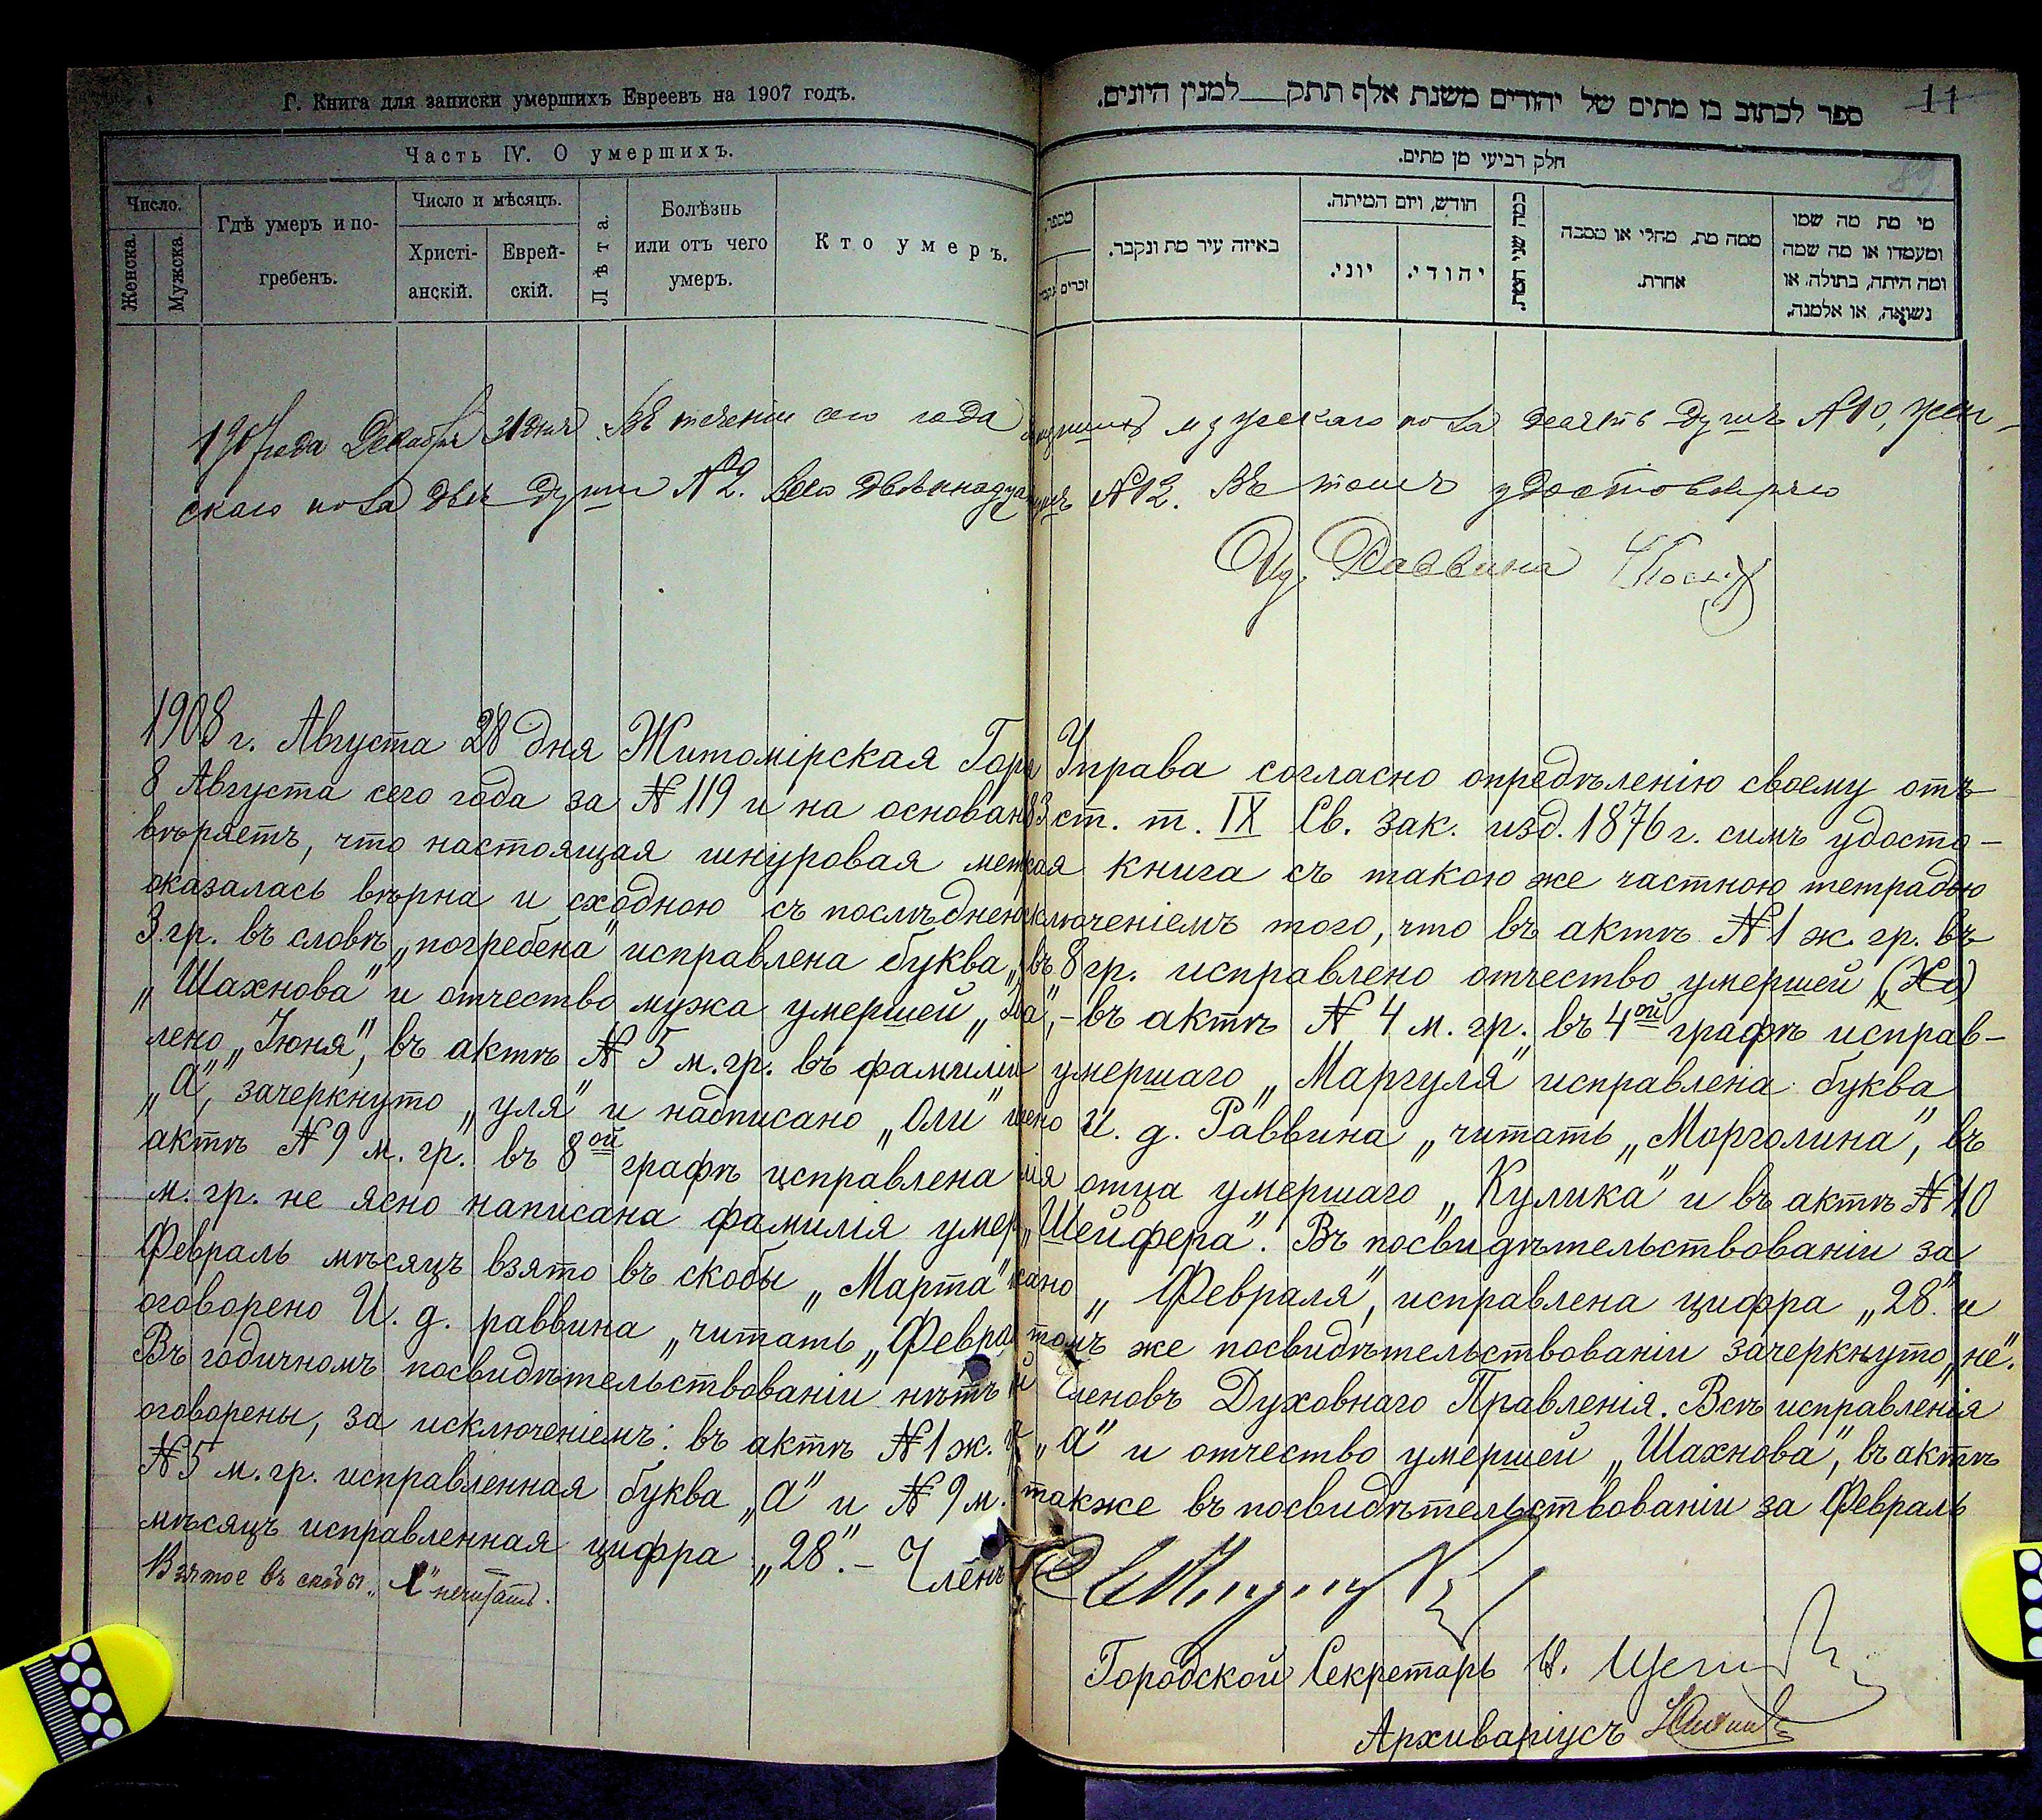 Г. Книга для записки умершихъ Евреевъ на 1907 годъ.
Часть IV. О умершихъ.
Число.
Женска.
Мужска.
Гдѣ умеръ и по-
гребенъ.
Число и мѣсяцъ.
Христі-
анскій.
Еврей-
скій.
Лѣта.
Болѣзнь
или отъ чего
умеръ.
Кто умеръ.
11
89
ספר לכתוב בו מתים של יהודים משנת אלף תתק למנין היונים.
חלק רביעי מן מתים.
מספר
זכרים
באיזה עיר מת ונקבר.
חודש, ויום המיתה.
יוני.
יהודי.
כמה שני המת.
ממה מת, מחלי או מסבה
אחרת.
מי מת מה שמו
ומעמדו או מה שמה
ומה היתה, בתולה, או
נשואה, או אלמנה.
1907 года Декабря 31 дня. Въ теченіи сего года мужскаго пола десять душъ №10, жен-
скаго пола двѣ души №2. Всего №12. Въ томъ удостовѣряю
Ид. Раввина
1908 г. Августа 28 дня Житомірская Гор Управа согласно опредѣленію своему отъ
8 Августа сего года за №119 и на основан 83 ст. т. IX Св. зак. изд. 1876 г. симъ удосто-
вѣряетъ, что настоящая шнуровая книга съ такою же частною тетрадью
оказалась вѣрна и сходною съ послѣднею ключеніемъ того, что въ актѣ №1 ж. гр. въ
3 гр. въ словѣ „погребена" исправлена буква въ 8 гр. исправлено отчество умершей (Ха)
„Шахнова" и отчество мужа умершей - въ актѣ №4 м. гр. въ 4ой графѣ исправ-
лено „Іюня", въ актѣ №5 м. гр. въ фамиліи умершаго „Маргуля" исправлена буква
„а", зачеркнуто „уля" и надписано „оли" И. д. Раввина „читать „Морголина", въ
актѣ №9 м. гр. въ 8ой графѣ исправлена отца умершаго „Кулика" и въ актѣ №10
м. гр. не ясно написана фамилія умер „Шейфера". Въ посвидѣтельствованіи за
Февраль мѣсяцъ взято въ скобы „Марта" „Февраля", исправлена цифра „28" и
оговорено И. д. раввина „читать „Февра томъ же посвидѣтельствованіи зачеркнуто „не".
Въ годичномъ посвидѣтельствованіи нѣтъ Членовъ Духовнаго Правленія. Всѣ исправленія
оговорены, за исключеніемъ: въ актѣ №1 ж. „а" и отчество умершей „Шахнова", въ актѣ
№5 м. гр. исправленная буква „а" и №9 м. также въ посвидѣтельствованіи за Февраль
мѣсяцъ исправленная цифра „28". - Членъ
Взятое въ скобы нечитать.
Городской Секретарь
Архиваріусъ